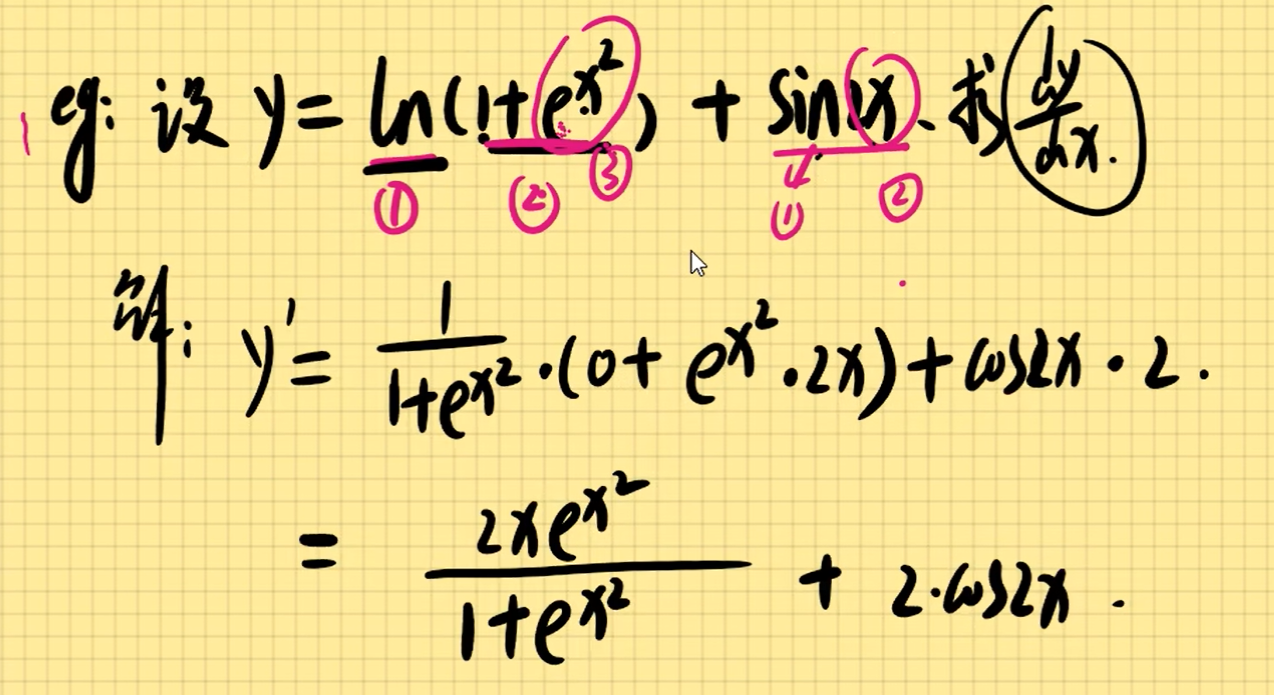 eg: 设 y = ln(1+e^{x^2}) + sin2x. 求 dy/dx.
① ② ③ ① ②
解: y' = 1/(1+e^{x^2}) · (0 + e^{x^2} · 2x) + cos2x · 2.
= 2xe^{x^2}/(1+e^{x^2}) + 2·cos2x.